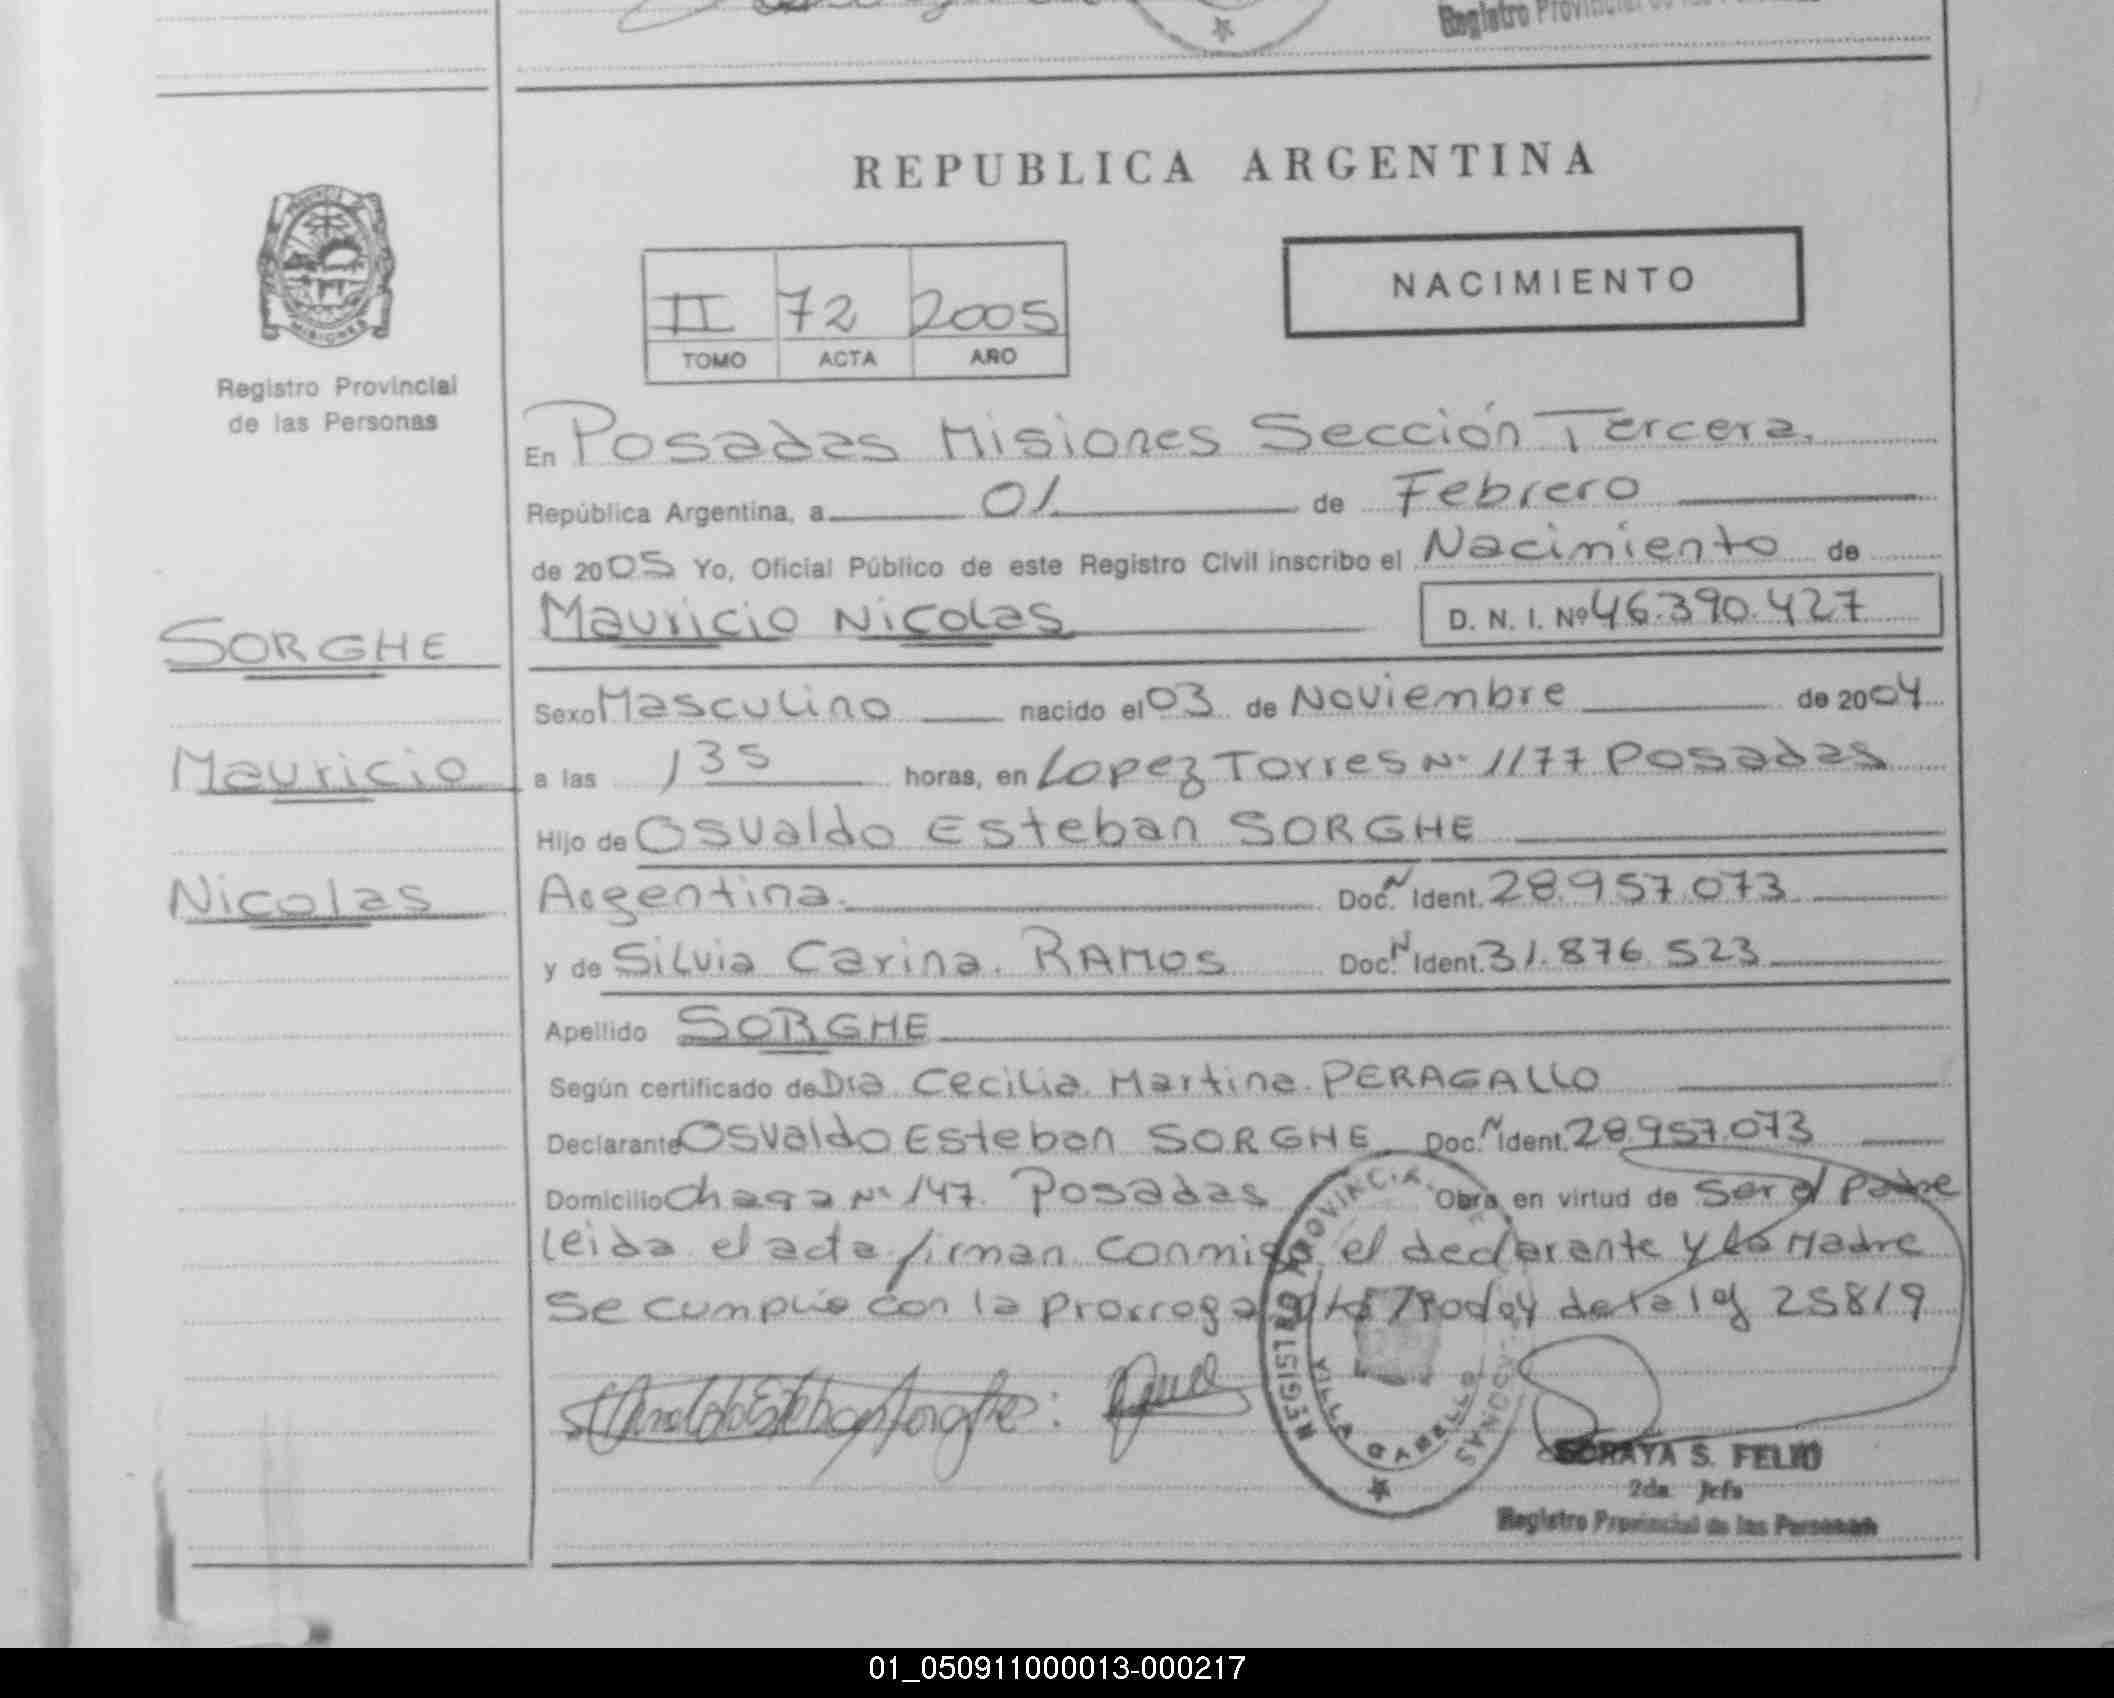 Registro Provincial de las Personas
REPUBLICA ARGENTINA
NACIMIENTO
II 72 2005
TOMO ACTA AÑO
MISIONES
Registro Provincial
de las Personas
En Posadas Misiones Sección Tercera.
República Argentina, a 01 de Febrero
de 2005 Yo, Oficial Público de este Registro Civil inscribo el Nacimiento de
Mauricio Nicolas D. N. I. Nº 46.390.427
SORGHE
Sexo Masculino nacido el 03 de Noviembre de 2004
Mauricio
a las 135 horas, en Lopez Torres Nº 1177 Posadas
Hijo de Osvaldo Esteban SORGHE
Nicolas
Argentina. Doc. N Ident. 28.957.073
y de Silvia Carina RAMOS Doc. N Ident. 31.876.523
Apellido SORGHE
Según certificado de Dra Cecilia Martina PERAGALLO
Declarante Osvaldo Esteban SORGHE Doc. N Ident. 28.957.073
Domicilio Chaga Nº 147. Posadas Obra en virtud de Ser el Padre
leida el acta firman conmigo el declarante y la Madre
Se cumplio con la prorroga de la ley 25819
REGISTRO PROVINCIAL
VILLA CABELLO
SORAYA S. FELIU
2da. Jefa
Registro Provincial de las Personas
01_050911000013-000217